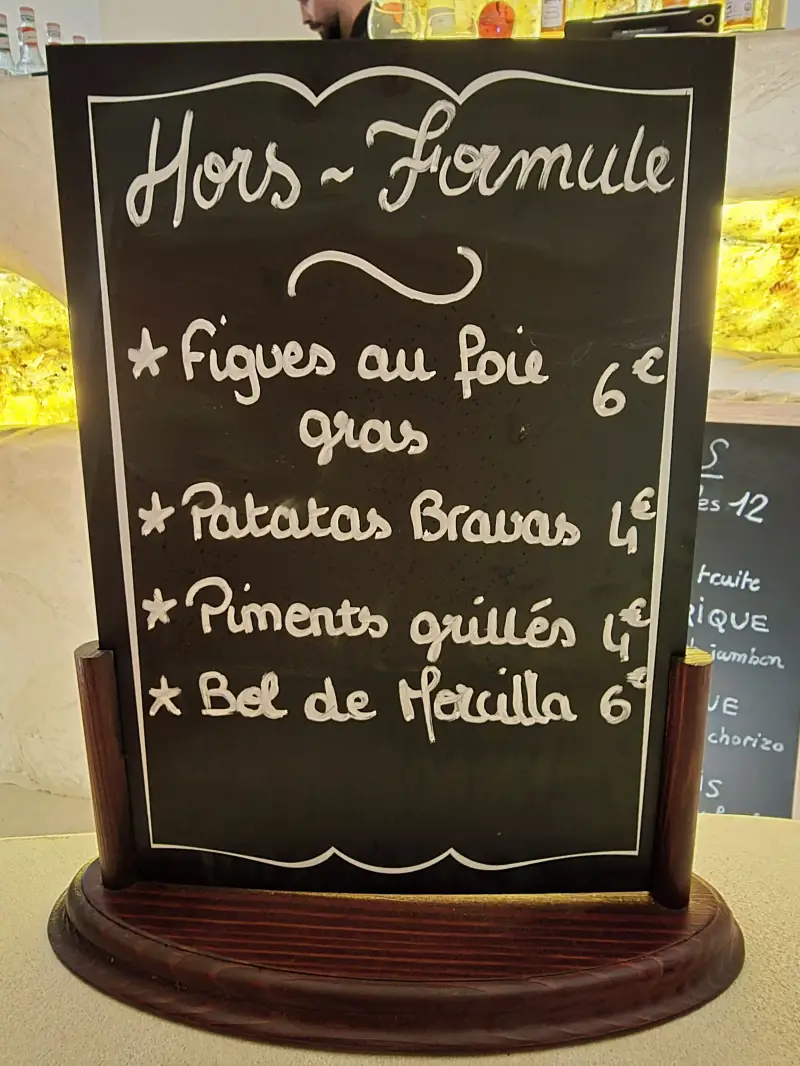 Hors ~ Formule
* Figues au foie 6€
gras
* Patatas Bravas 4€
* Piments grillés 4€
* Bol de Morcilla 6€
S
es 12
truite
RIQUE
jambon
UE
chorizo
IS